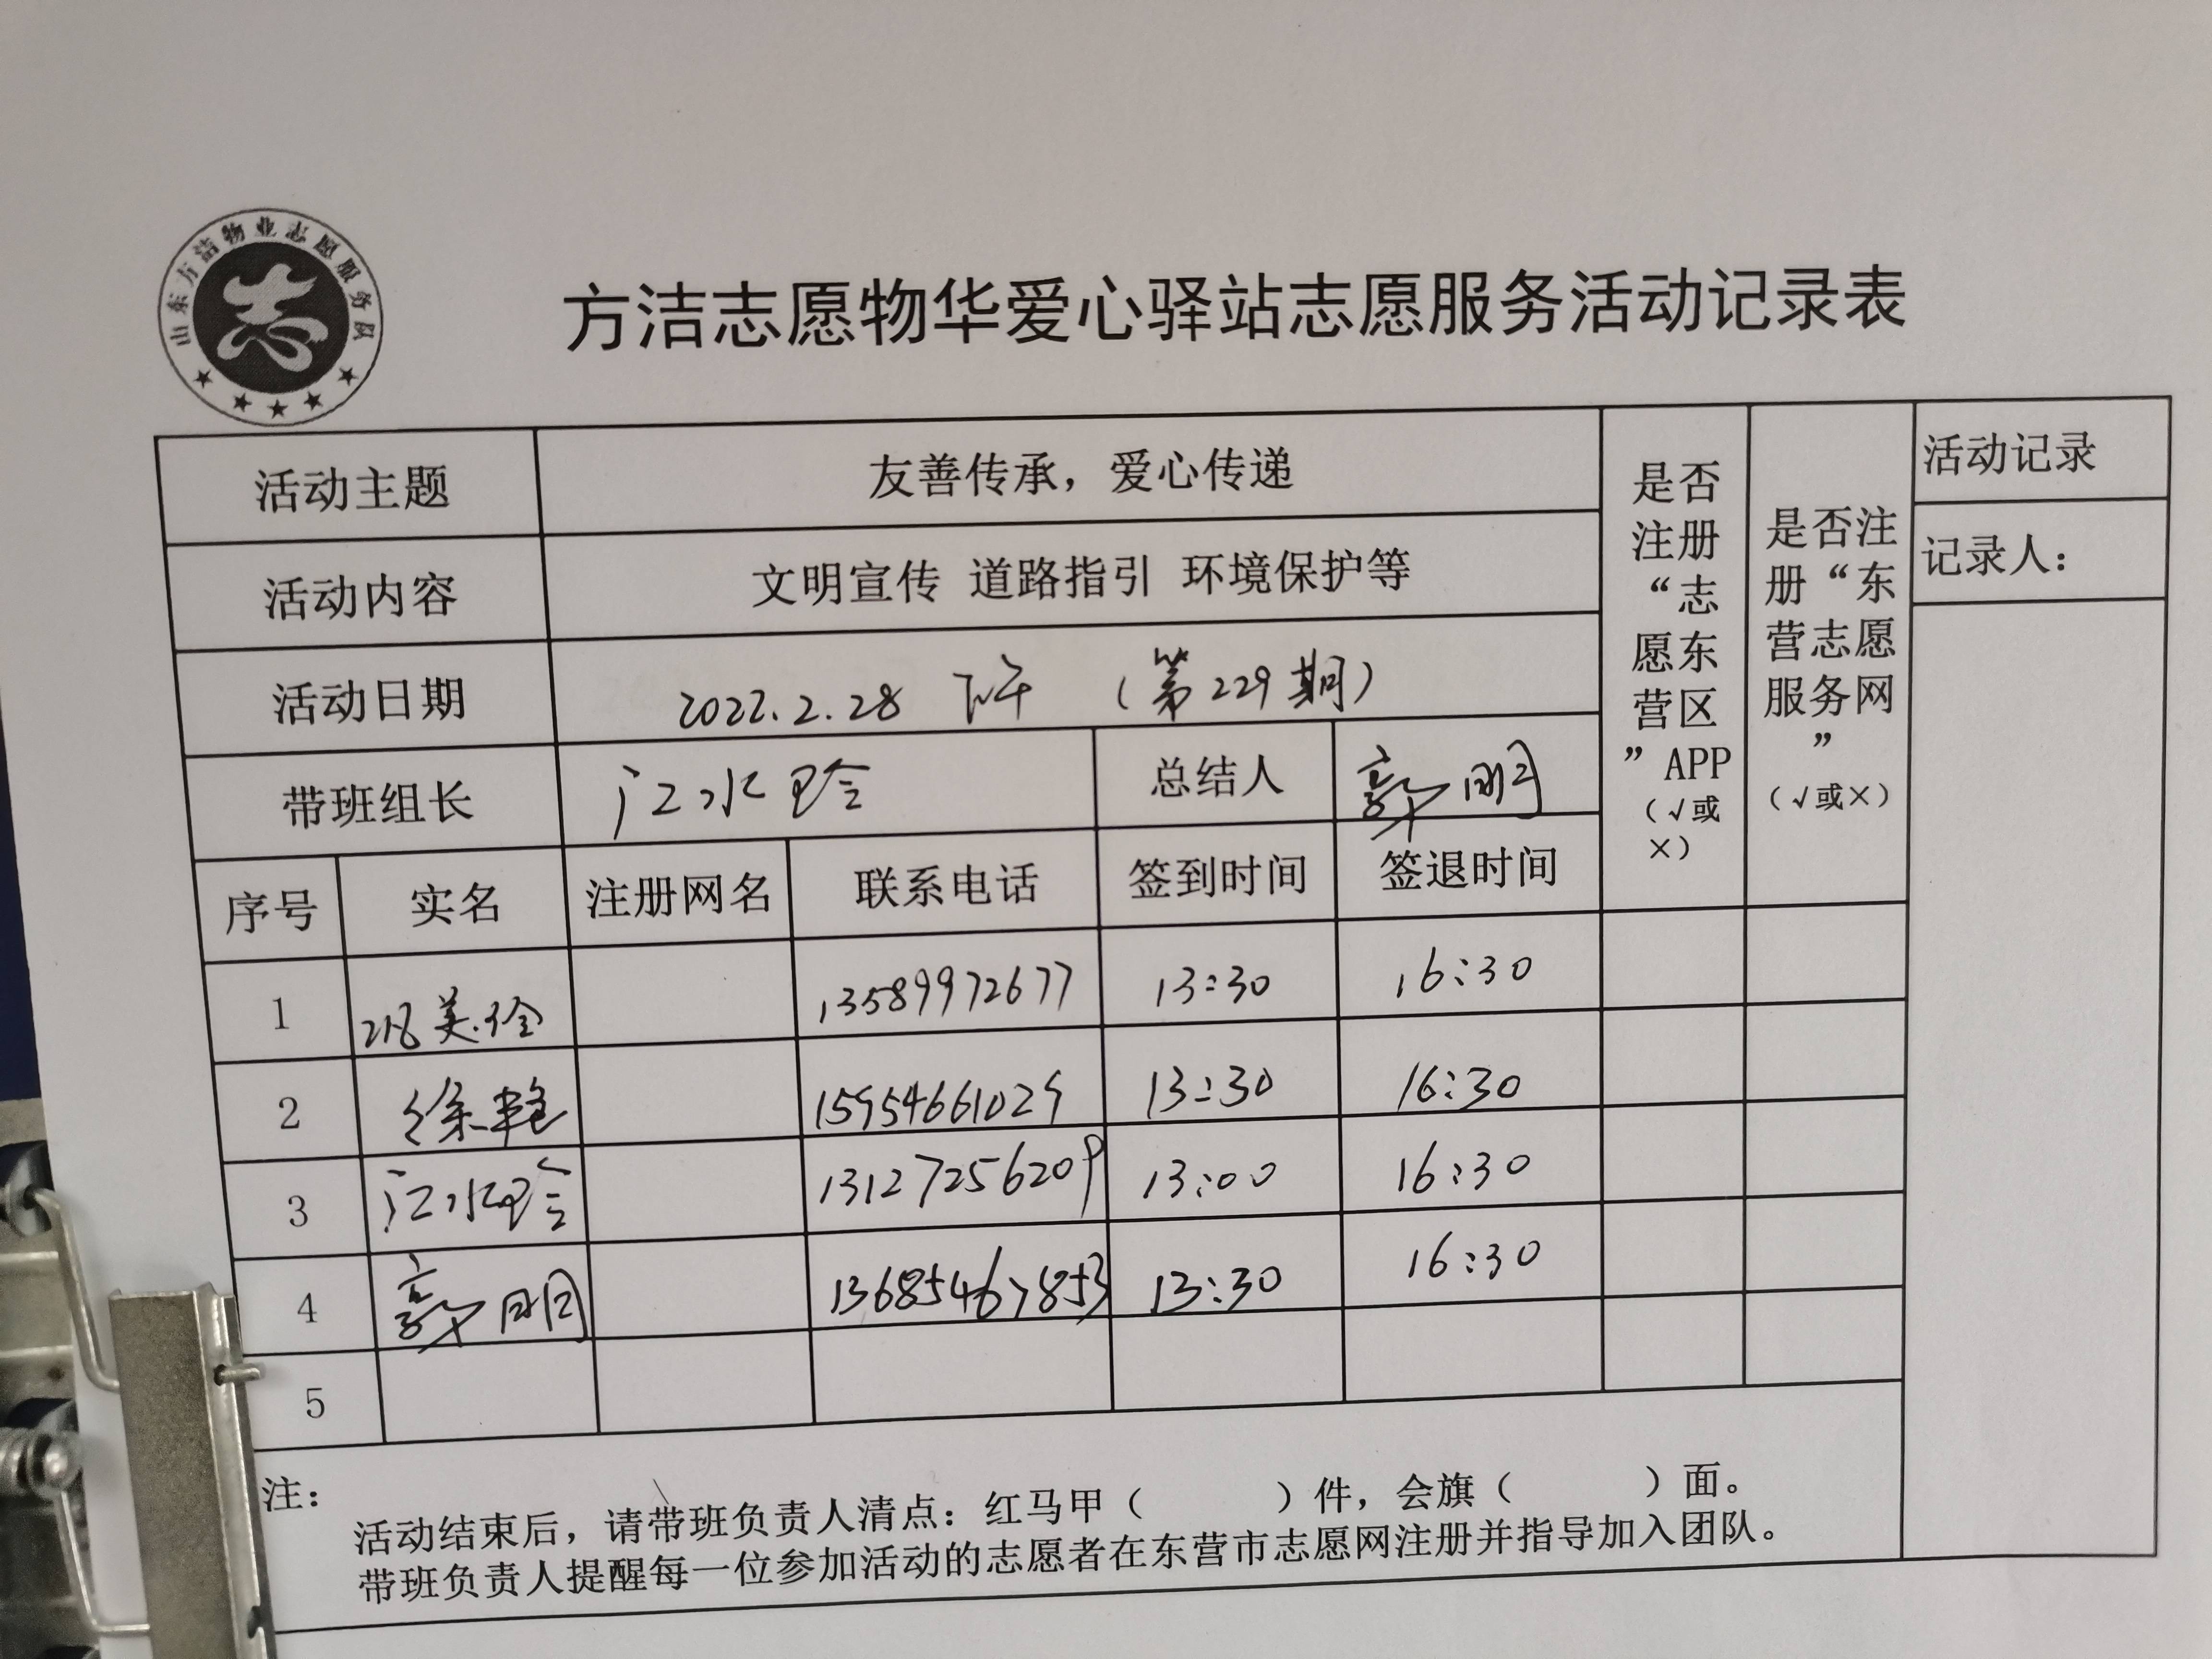 山东方洁物业志愿服务队
方洁志愿物华爱心驿站志愿服务活动记录表
活动主题 友善传承，爱心传递
活动内容 文明宣传 道路指引 环境保护等
活动日期 2022.2.28 下午 （第229期）
带班组长 江水玲 总结人 郭明
是否注册“志愿东营区”APP（√或×）
是否注册“东营志愿服务网”（√或×）
活动记录
记录人：
序号 实名 注册网名 联系电话 签到时间 签退时间
1 美 13589972677 13:30 16:30
2 徐艳 15954661029 13:30 16:30
3 江水玲 13127256209 13:00 16:30
4 郭明 13685467853 13:30 16:30
5
注：
活动结束后，请带班负责人清点：红马甲（ ）件，会旗（ ）面。
带班负责人提醒每一位参加活动的志愿者在东营市志愿网注册并指导加入团队。